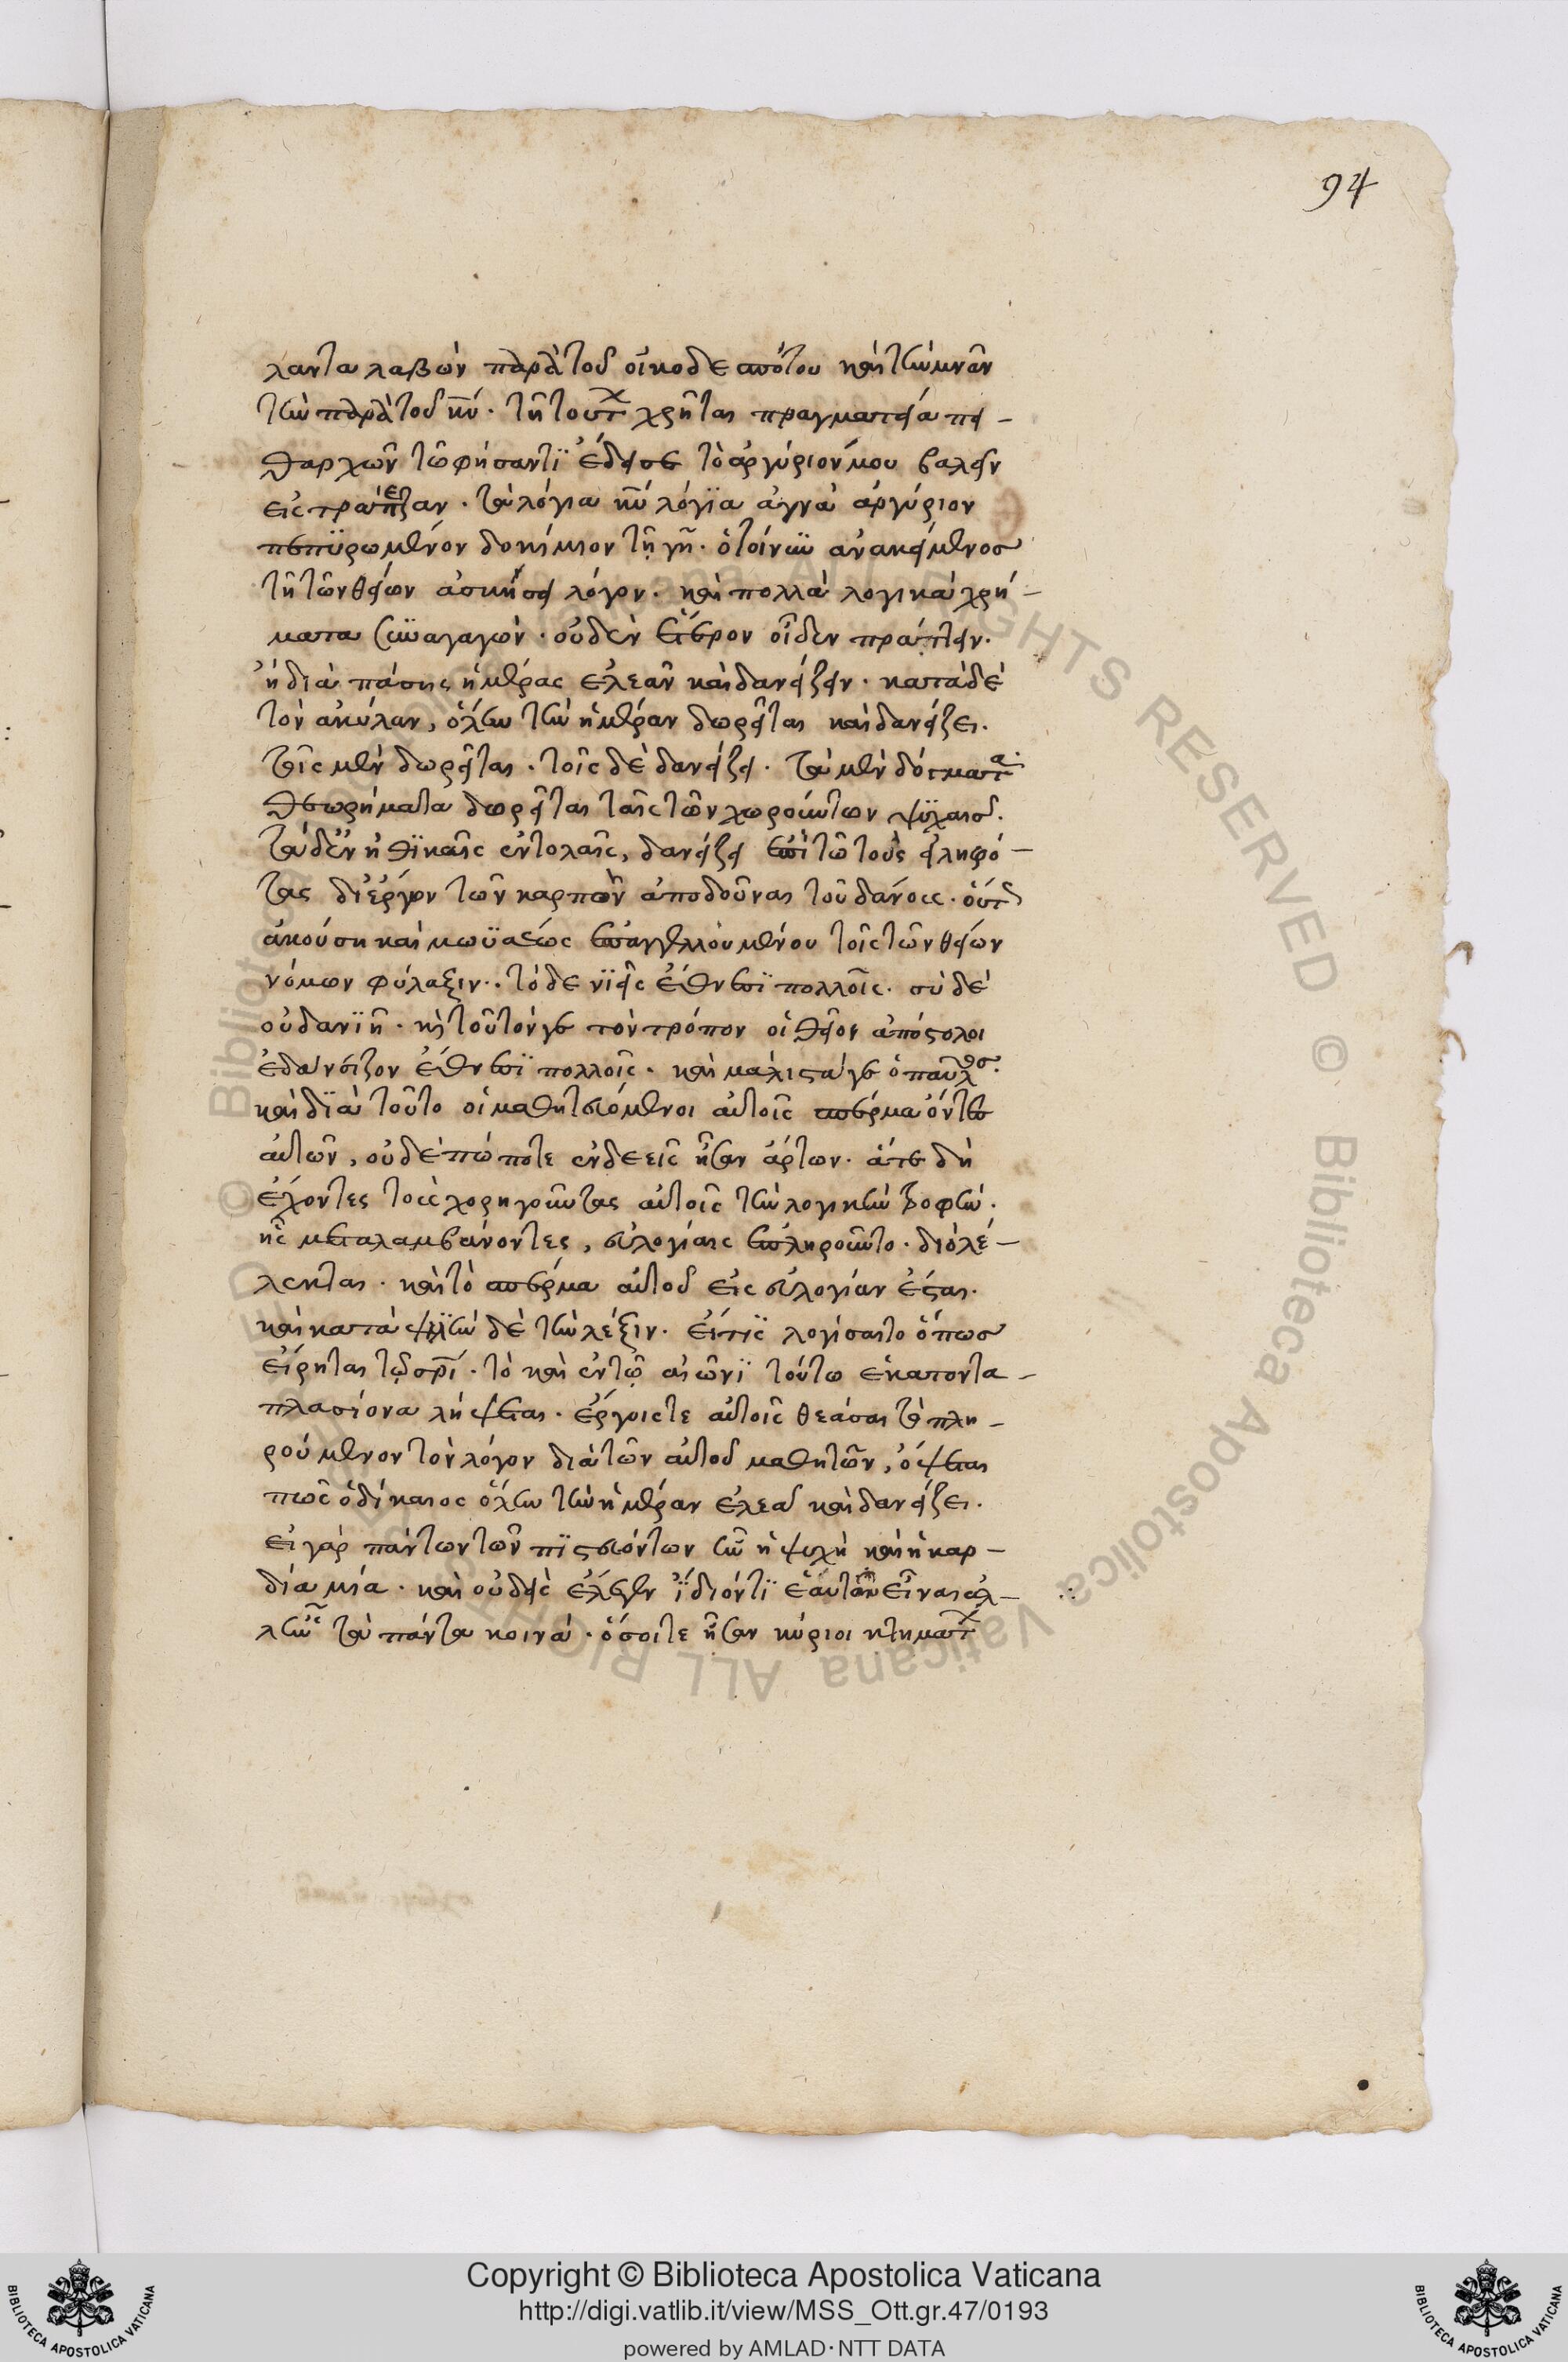 94
λαντα λαβὼν παρὰ τοῦ οἰκοδεσπότου καὶ τὴν μνᾶν
τὴν παρὰ τοῦ κυ̅. τῇ τούτ χρῆται πραγματεία πει-
θαρχῶν τῷ φήσαντϊ ἔδει σε τὸ ἀργύριόν μου βαλεῖν
εἰς τράπεζαν. τὰ λόγια κυ̅ λόγϊα ἁγνὰ ἀργύριον
πεπϋρωμένον δοκίμιον τῇ γῇ. ὁ τοίνϋν ἀνακείμενοσ
τῇ τῶν θείων ἀσκήσει λόγων. καὶ πολλὰ λογικὰ χρή-
ματα συναγαγὼν. οὐδὲν ἕτερον οἶδεν πράττειν.
ἢ διὰ πάσης ἡμέρας ἐλεᾶν καὶ δανείζειν. κατὰ δὲ
τὸν ἀκύλαν, ὅλην τὴν ἡμέραν δωρεῖται καὶ δανείζει.
τοῖς μὲν δωρεῖται. τοῖς δὲ δανείζει. τὰ μὲν δόγματα
θεωρήματα δωρεῖται ταῖς τῶν χωρούντων ψϋχαισ.
τὰ δ' ἐν ἠθϊκαῖς ἐντολαῖς, δανείζει ἐπὶ τῷ τοὺς εἰληφό-
τας δι' ἔργων τῶν καρπῶν ἀποδοῦναι τοῦ δάνους. οὕτ
ἀκούση καὶ μωϋσέως ἐπαγγελλομένου τοῖς τῶν θείων
νόμων φύλαξιν. τὸ δενϊεῖς ἔθνεσϊ πολλοῖς. σὺ δὲ
οὐ δανϊῇ. κ τοῦτόν γε τὸν τρόπον οἱ θεῖοι ἀπόστολοι
ἐδάνειζον ἔθνεσϊ πολλοῖς. καὶ μάλιστά γε ὁ παῦλοσ.
καὶ δϊὰ τοῦτο οἱ μαθητευόμενοι αὐτοῖς σπέρμα ὄντες
αὐτῶν, οὐδὲ πώποτε ἐνδεεῖς ἦσαν ἄρτων. ἅτε δὴ
ἔχοντες τοὺς χορηγοῦντας αὐτοῖς τὴν λογικὴν τροφὴν.
ἧς μεταλαμβάνοντες, εὐλογίαις ἐπληροῦντο. διὸ λέ-
λεκται. καὶ τὸ σπέρμα αὐτοῦ εἰς εὐλογίαν ἔσται.
καὶ κατὰ ψϊλὴν δὲ τὴν λέξιν. εἴ τϊς λογίσαιτο ὅπωσ
εἴρηται τῷ σρι̅. τὸ καὶ ἐν τῷ αἰῶνϊ τούτω ἑκατοντα-
πλασίονα λήψεται. ἔργοις τε αὐτοῖς θεάσαι τὸ πλη-
ρούμενον τὸν λόγον διὰ τῶν αὐτοῦ μαθητῶν, ὄψεται
πῶς ὁ δίκαιος ὅλην τὴν ἡμέραν ἐλεᾶ καὶ δανείζει.
εἰ γὰρ πάντων τῶν πϊστευόντων ἦν ἡ ψυχὴ καὶ ἡ καρ-
δία μία. καὶ οὐδεὶς ἔλεγεν ἴδιόν τϊ ἑαυτῶν εἶναι ἀλ-
λ' ἦν τὰ πάντα κοινὰ. ὅσοι τε ἦσαν κύριοι κτημάτ
Copyright © Biblioteca Apostolica Vaticana
http://digi.vatlib.it/view/MSS_Ott.gr.47/0193
powered by AMLAD·NTT DATA
BIBLIOTECA APOSTOLICA VATICANA
BIBLIOTECA APOSTOLICA VATICANA
© Biblioteca Apostolica Vaticana ALL RIGHTS RESERVED © Biblioteca Apostolica Vaticana ALL RIGHTS RESERVED